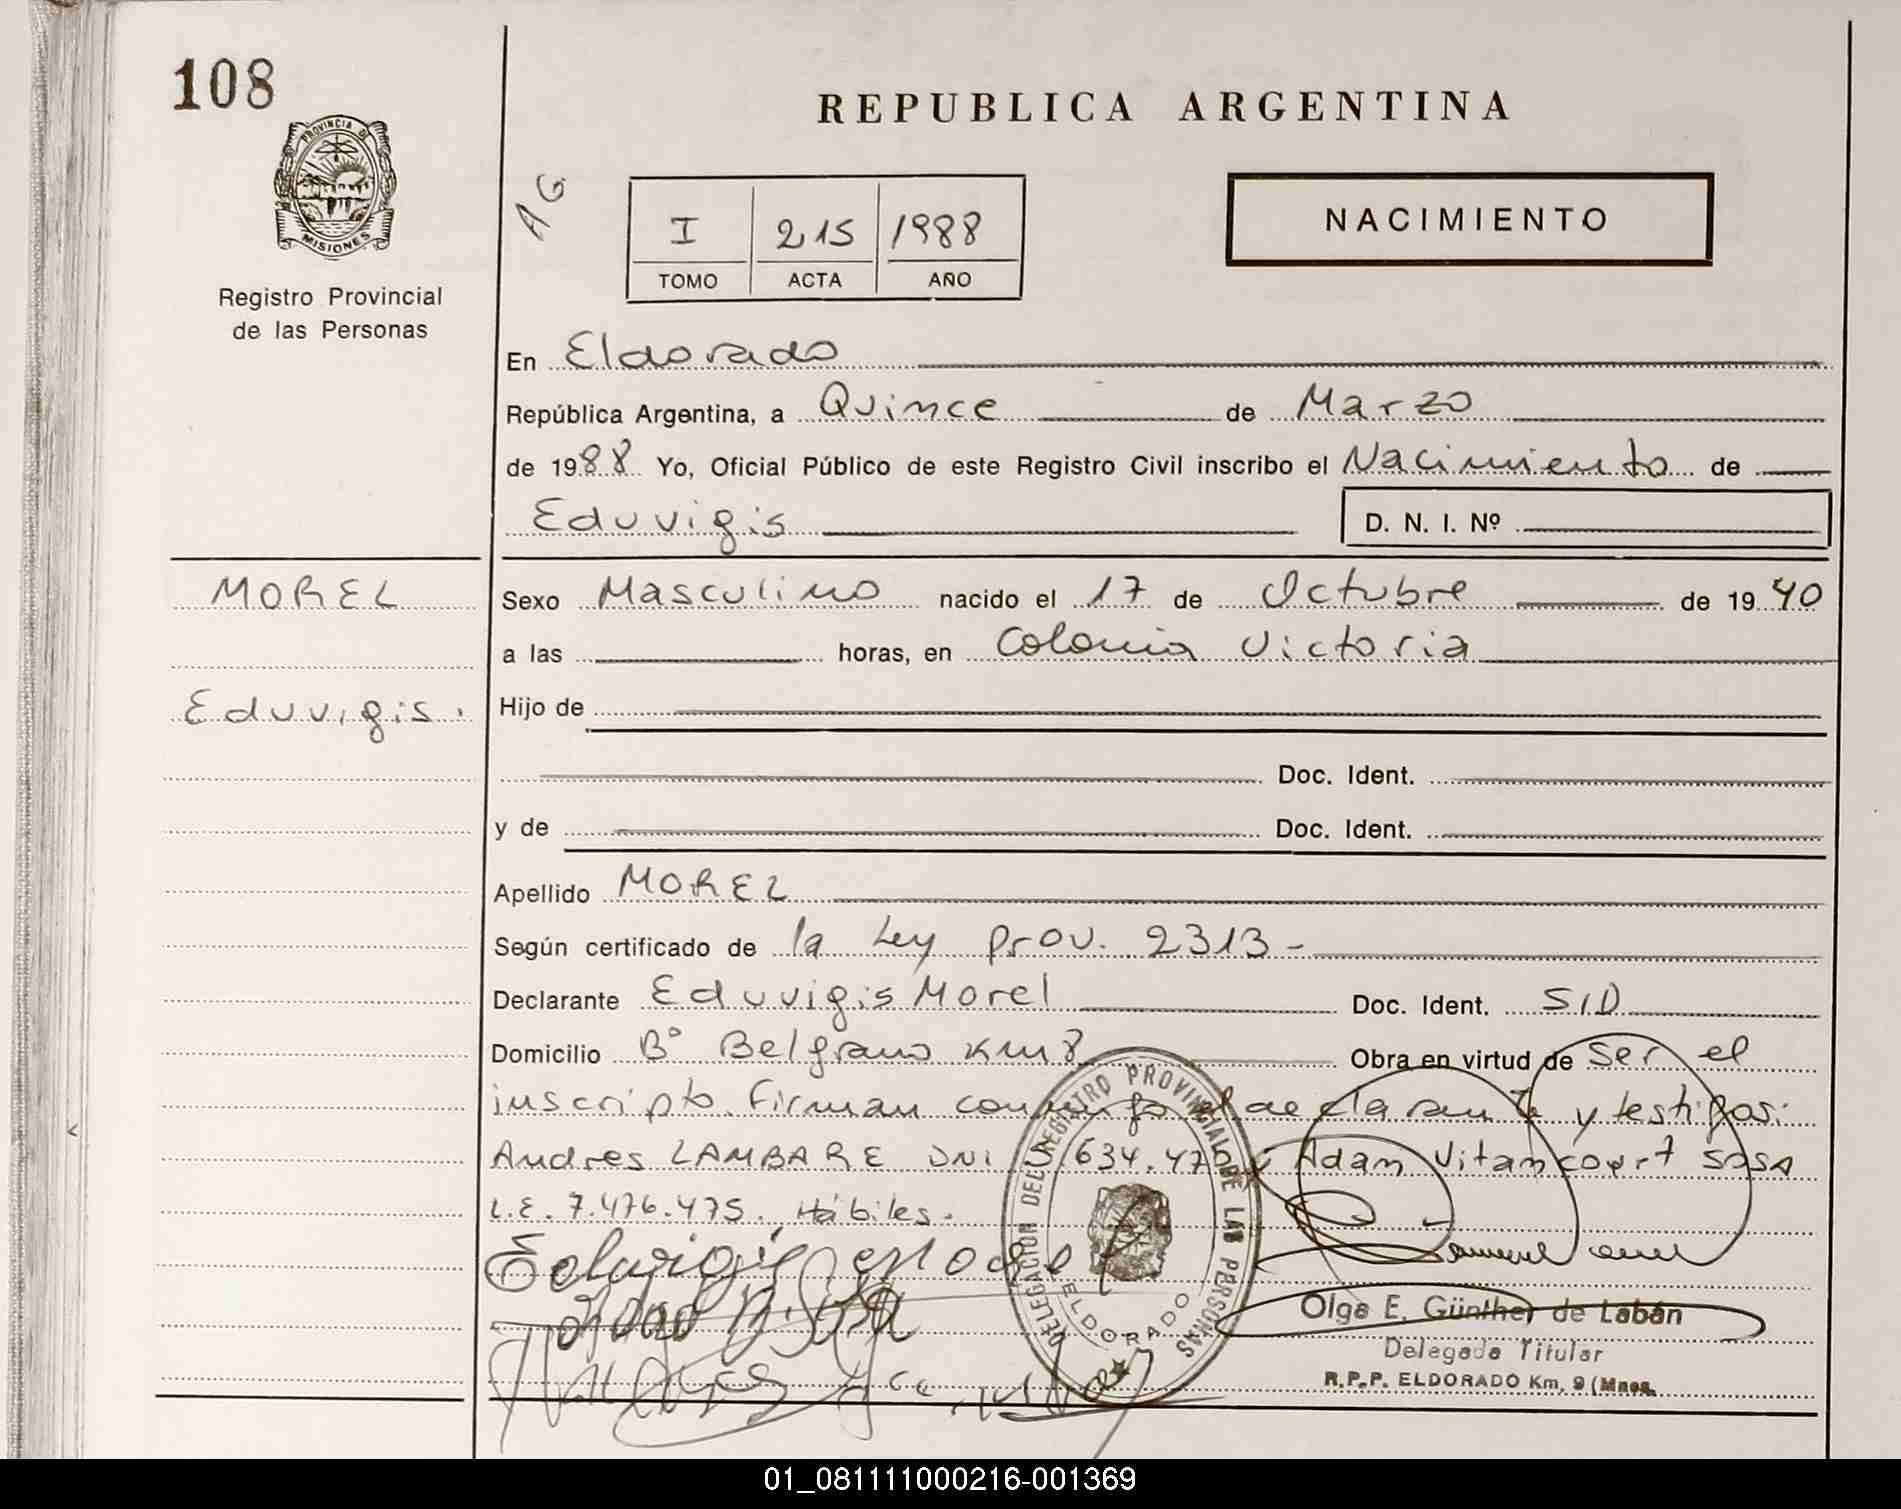 108
PROVINCIA DE
MISIONES
Registro Provincial
de las Personas
REPUBLICA ARGENTINA
AG
I 215 1988
TOMO ACTA AÑO
NACIMIENTO
En Eldorado
República Argentina, a Quince de Marzo
de 1988 Yo, Oficial Público de este Registro Civil inscribo el Nacimiento de
Eduvigis D. N. I. Nº
MOREL
Eduvigis.
Sexo Masculino nacido el 17 de Octubre de 1940
a las horas, en Colonia Victoria
Hijo de
Doc. Ident.
y de Doc. Ident.
Apellido MOREL
Según certificado de la Ley Prov. 2313-
Declarante Eduvigis Morel Doc. Ident. S/D
Domicilio Bº Belgrano Km 8 Obra en virtud de ser el
inscripto. Firman conmigo el declarante y testigos:
Andres LAMBARE DNI 634.47 Adam Vitancourt SOSA
L.E. 7.476.475. Hábiles.
DELEGACION DEL REGISTRO PROVINCIAL DE LAS PERSONAS
ELDORADO
Olga E. Günther de Labán
Delegada Titular
R.P.P. ELDORADO Km. 9 (Mnes.
01_081111000216-001369